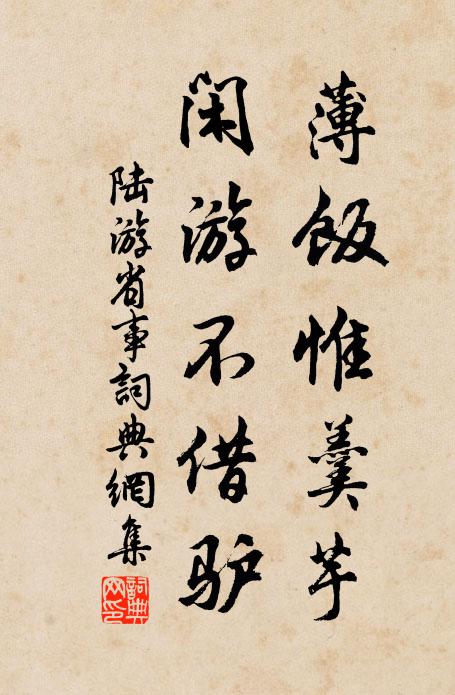 薄飯惟羹芋
闲游不借驴
陆游省事詞典網集
詞典网印